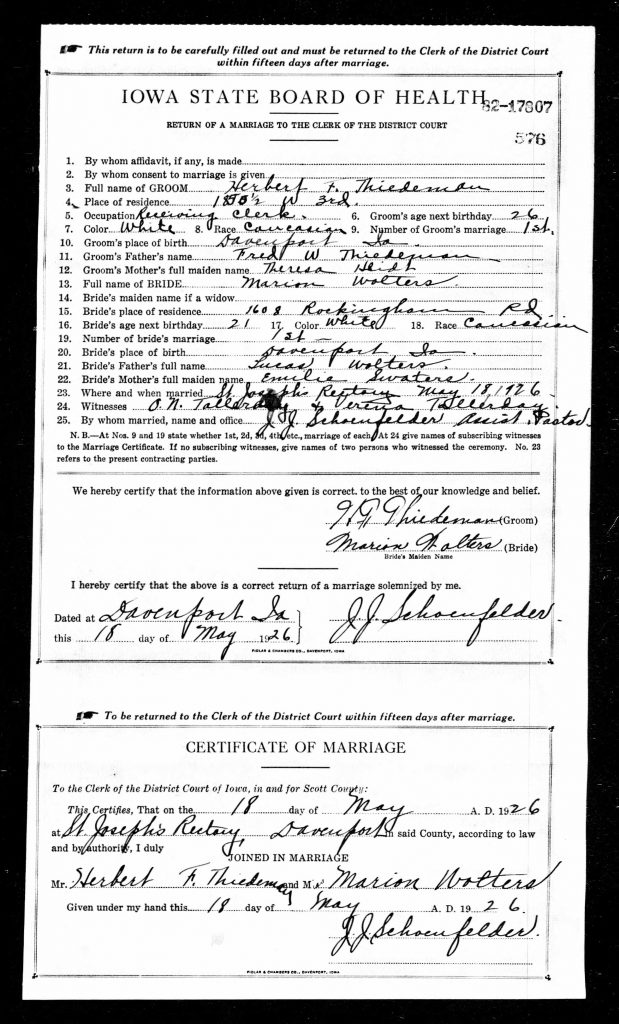 This return is to be carefully filled out and must be returned to the Clerk of the District Court
within fifteen days after marriage.
IOWA STATE BOARD OF HEALTH
82-17807
RETURN OF A MARRIAGE TO THE CLERK OF THE DISTRICT COURT
576
1. By whom affidavit, if any, is made
2. By whom consent to marriage is given
3. Full name of GROOM Herbert F. Thiedeman
4. Place of residence W 3rd.
5. Occupation Receiving Clerk. 6. Groom's age next birthday 26
7. Color White 8. Race Caucasian 9. Number of Groom's marriage 1st.
10. Groom's place of birth Davenport Ia
11. Groom's Father's name Fred W Thiedeman
12. Groom's Mother's full maiden name Theresa Heidt
13. Full name of BRIDE Marion Wolters
14. Bride's maiden name if a widow
15. Bride's place of residence 1608 Rockingham Rd
16. Bride's age next birthday 21 17. Color White 18. Race Caucasian
19. Number of bride's marriage 1st
20. Bride's place of birth Davenport Ia.
21. Bride's Father's full name Lucas Wolters.
22. Bride's Mother's full maiden name Emilie Swaters.
23. Where and when married St Joseph's Rectory May 18, 1926.
24. Witnesses O.N. Tallerday & Verena Tallerday
25. By whom married, name and office J.J. Schoenfelder Assist. Pastor
N. B.—At Nos. 9 and 19 state whether 1st, 2d, 3d, 4th, etc., marriage of each. At 24 give names of subscribing witnesses
to the Marriage Certificate. If no subscribing witnesses, give names of two persons who witnessed the ceremony. No. 23
refers to the present contracting parties.
We hereby certify that the information above given is correct. to the best of our knowledge and belief.
Thiedeman (Groom)
Marion Wolters (Bride)
Bride's Maiden Name
I hereby certify that the above is a correct return of a marriage solemnized by me.
Dated at Davenport Ia
this 18 day of May 1926 J.J. Schoenfelder.
FIDLAR & CHAMBERS CO., DAVENPORT, IOWA
To be returned to the Clerk of the District Court within fifteen days after marriage.
CERTIFICATE OF MARRIAGE
To the Clerk of the District Court of Iowa, in and for Scott County:
This Certifies, That on the 18 day of May A. D. 1926
at St Joseph's Rectory, Davenport in said County, according to law
and by authority, I duly
JOINED IN MARRIAGE
Mr. Herbert F. Thiedeman and M Marion Wolters
Given under my hand this 18 day of May A. D. 1926.
J.J. Schoenfelder.
FIDLAR & CHAMBERS CO., DAVENPORT, IOWA